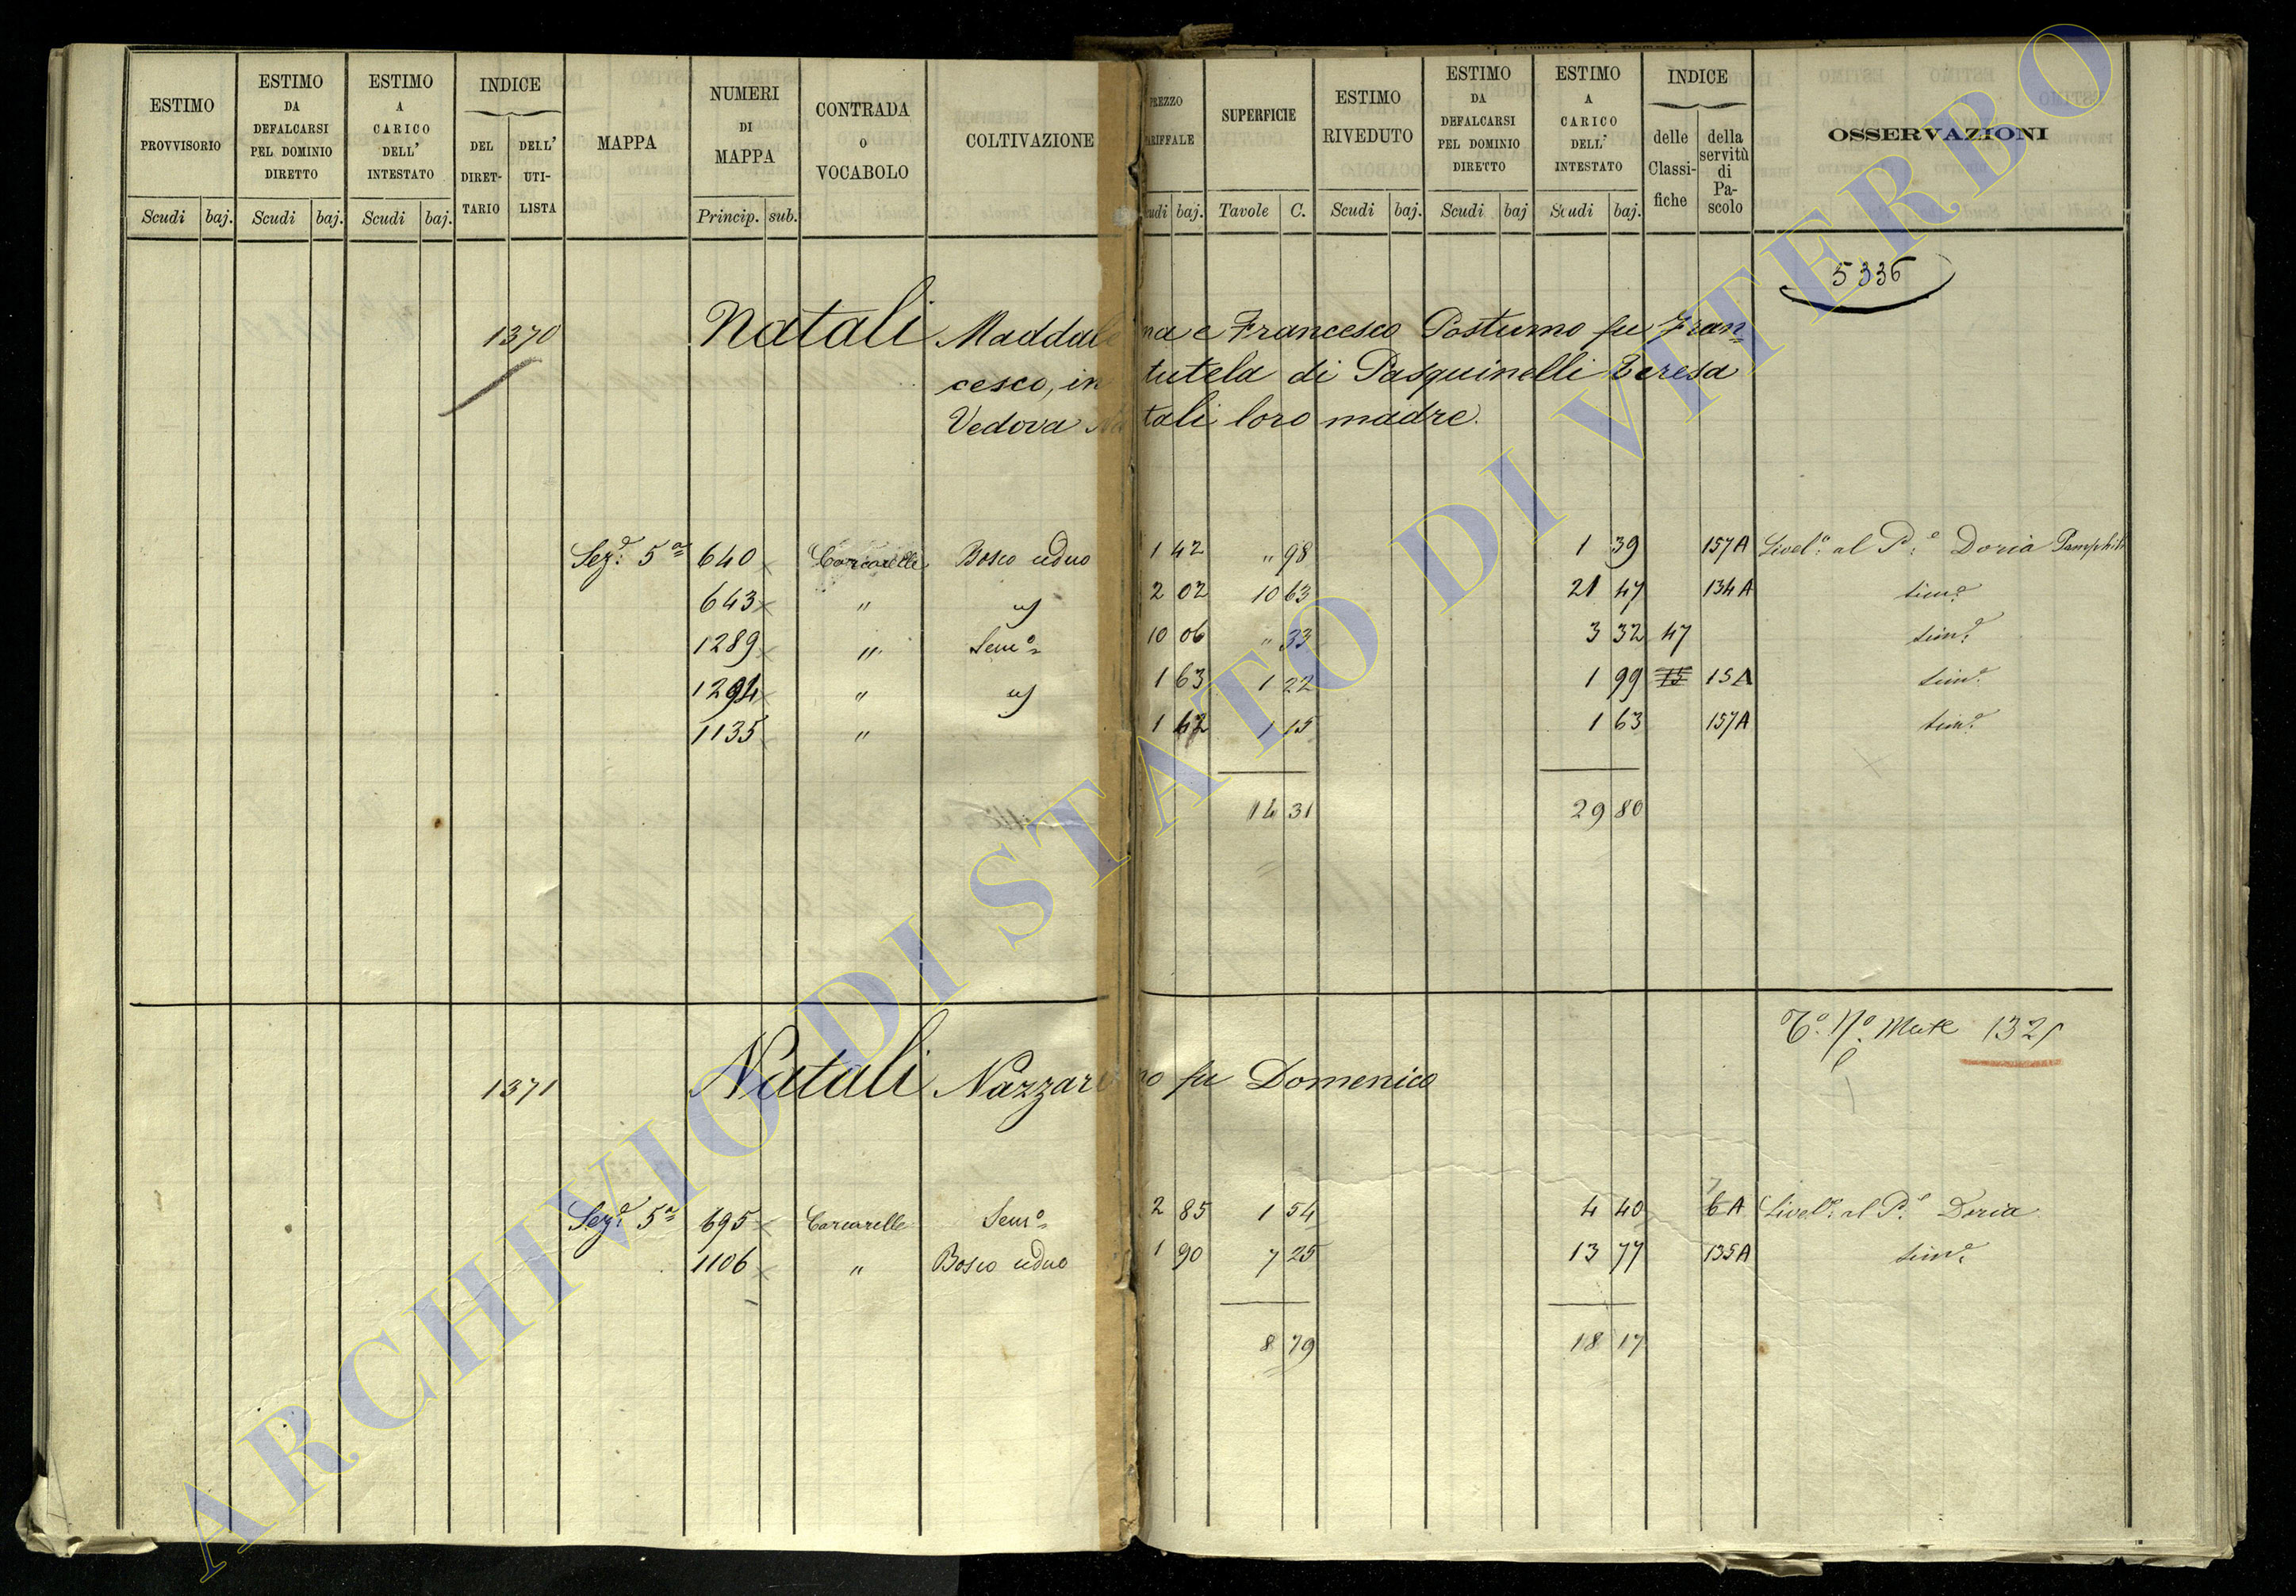 ESTIMO PROVVISORIO
ESTIMO DA DEFALCARSI PEL DOMINIO DIRETTO
ESTIMO A CARICO DELL' INTESTATO
INDICE
DEL DIRET-TARIO
DELL' UTI-LISTA
MAPPA
NUMERI DI MAPPA
CONTRADA O VOCABOLO
COLTIVAZIONE
Scudi baj. Scudi baj. Scudi baj. Princip. sub.
PREZZO TARIFFALE
SUPERFICIE
ESTIMO RIVEDUTO
ESTIMO DA DEFALCARSI PEL DOMINIO DIRETTO
ESTIMO A CARICO DELL' INTESTATO
INDICE
delle Classi-fiche
della servitù di Pa-scolo
OSSERVAZIONI
Scudi baj. Tavole C. Scudi baj. Scudi baj Scudi baj.
5336
1370 Natali Maddalena e Francesco Postumo fu Fran=
cesco, in tutela di Pasquinelli Teresa
Vedova Natali loro madre.
Sez.e 5a 640 Carcarelle Bosco ceduo 1 42 " 98 1 39 157A Livel.o al P.e Doria Pamphili
643 " 2 02 10 63 21 47 134A sim.e
1289 " Sem.o 10 06 " 33 3 32 47 sim.e
1294 " 1 63 1 22 1 99 15 15A sim.e
1135 " 1 42 1 15 1 63 157A sim.e
14 31 29 80
1321
1371 Natali Nazzareno fu Domenico
Sez.e 5a 695 Carcarelle Sem.o 2 85 1 54 4 40 6A Livel.o al P.e Doria
1106 " Bosco ceduo 1 90 7 25 13 77 135A sim.e
8 79 18 17
ARCHIVIO DI STATO DI VITERBO